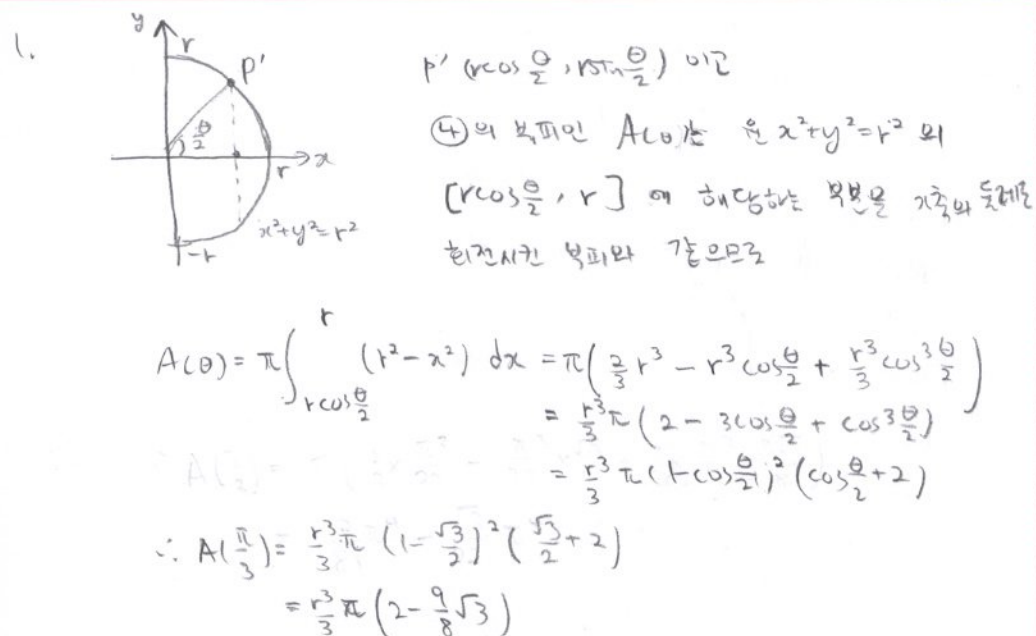 1.
y
r
P'
θ/2
x
r
x²+y²=r²
-r
P' (rcos θ/2, rsin θ/2) 이고
④의 부피인 A(θ)는 원 x²+y²=r² 의
[rcos θ/2, r] 에 해당하는 부분을 x축의 둘레로
회전시킨 부피와 같으므로
A(θ) = π∫_{rcos θ/2}^{r} (r²-x²) dx = π(2/3 r³ - r³cos θ/2 + r³/3 cos³ θ/2)
= r³/3 π (2 - 3cos θ/2 + cos³ θ/2)
= r³/3 π (1-cos θ/2)² (cos θ/2 + 2)
∴ A(π/3) = r³/3 π (1-√3/2)² (√3/2 + 2)
= r³/3 π (2 - 9/8 √3)